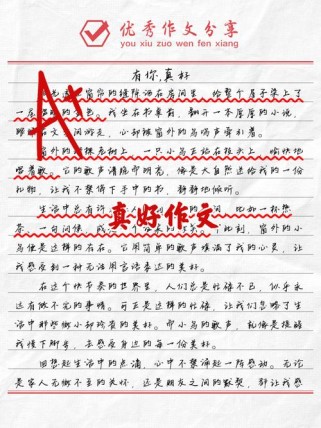 优秀作文分享
you xiu zuo wen fen xiang
有你,真好
光透过窗帘的缝隙洒在房间里,给整个屋子染上了
一层的色。我坐在书桌前,翻开一本厚厚的小说,
眼在文间游走,心却被窗外的鸟鸣声牵引着。
窗外的树上,一只小鸟正站在枝头上,愉快地
唱着歌。它的歌声清脆而明亮,像是大自然送给我的一份
礼物,让我不禁停下手中的书,静静地倾听。
生活中总有许,比如一杯热
茶,一句问候,此刻,窗外的小
鸟便是这样的存在。它用简单的歌声填满了我的心灵,让
我感受到一种无法用言语表达的美好。
在这个快节奏的世界里,人们总是忙忙碌碌,似乎永
远有做不完的事情。可正是这样的忙碌,让我们忽略了生
活中那些微小却珍贵的美好。而小鸟的歌声,就像是提醒
我慢下脚步,去感受身边的每一份美好。
回想起生活中的点滴,心中不禁涌起一阵感动。无论
是家人无微不至的关怀,还是朋友之间的默契,都让我感
A+
真好作文